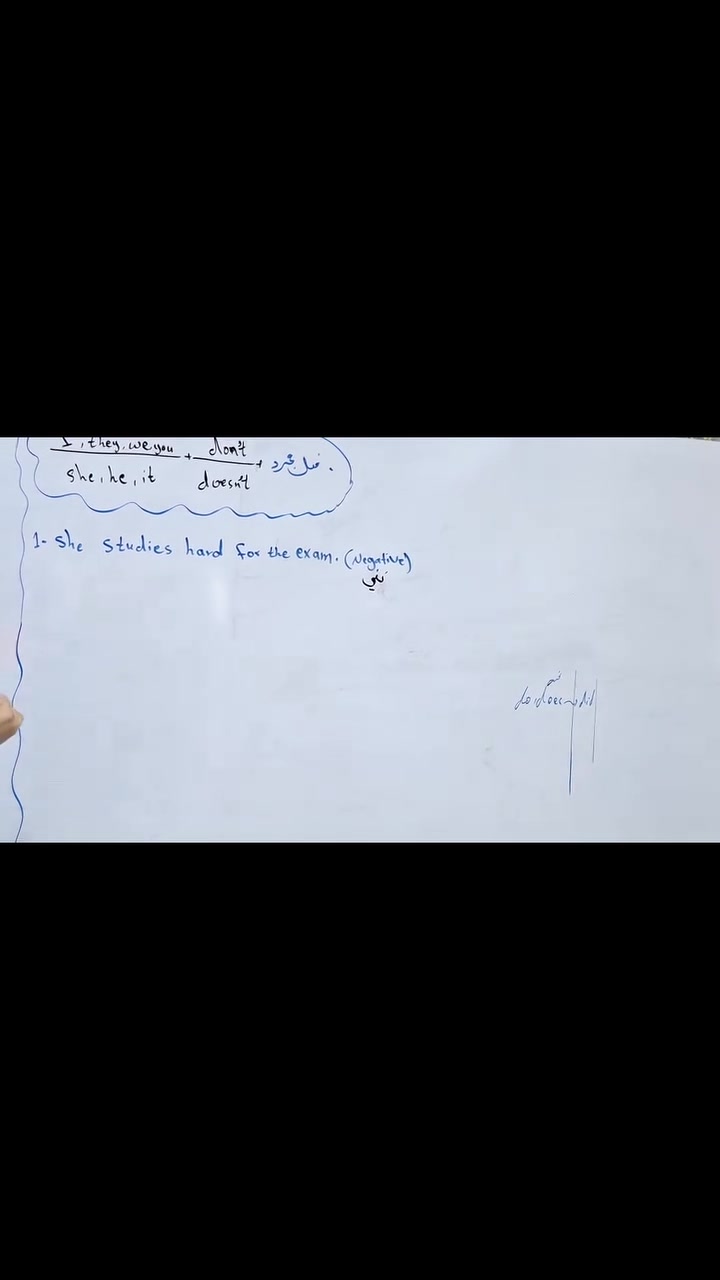 I, they, we, you + don't + فعل مجرد.
she, he, it doesn't
1- She studies hard for the exam. (Negative)
نفي
do, does did